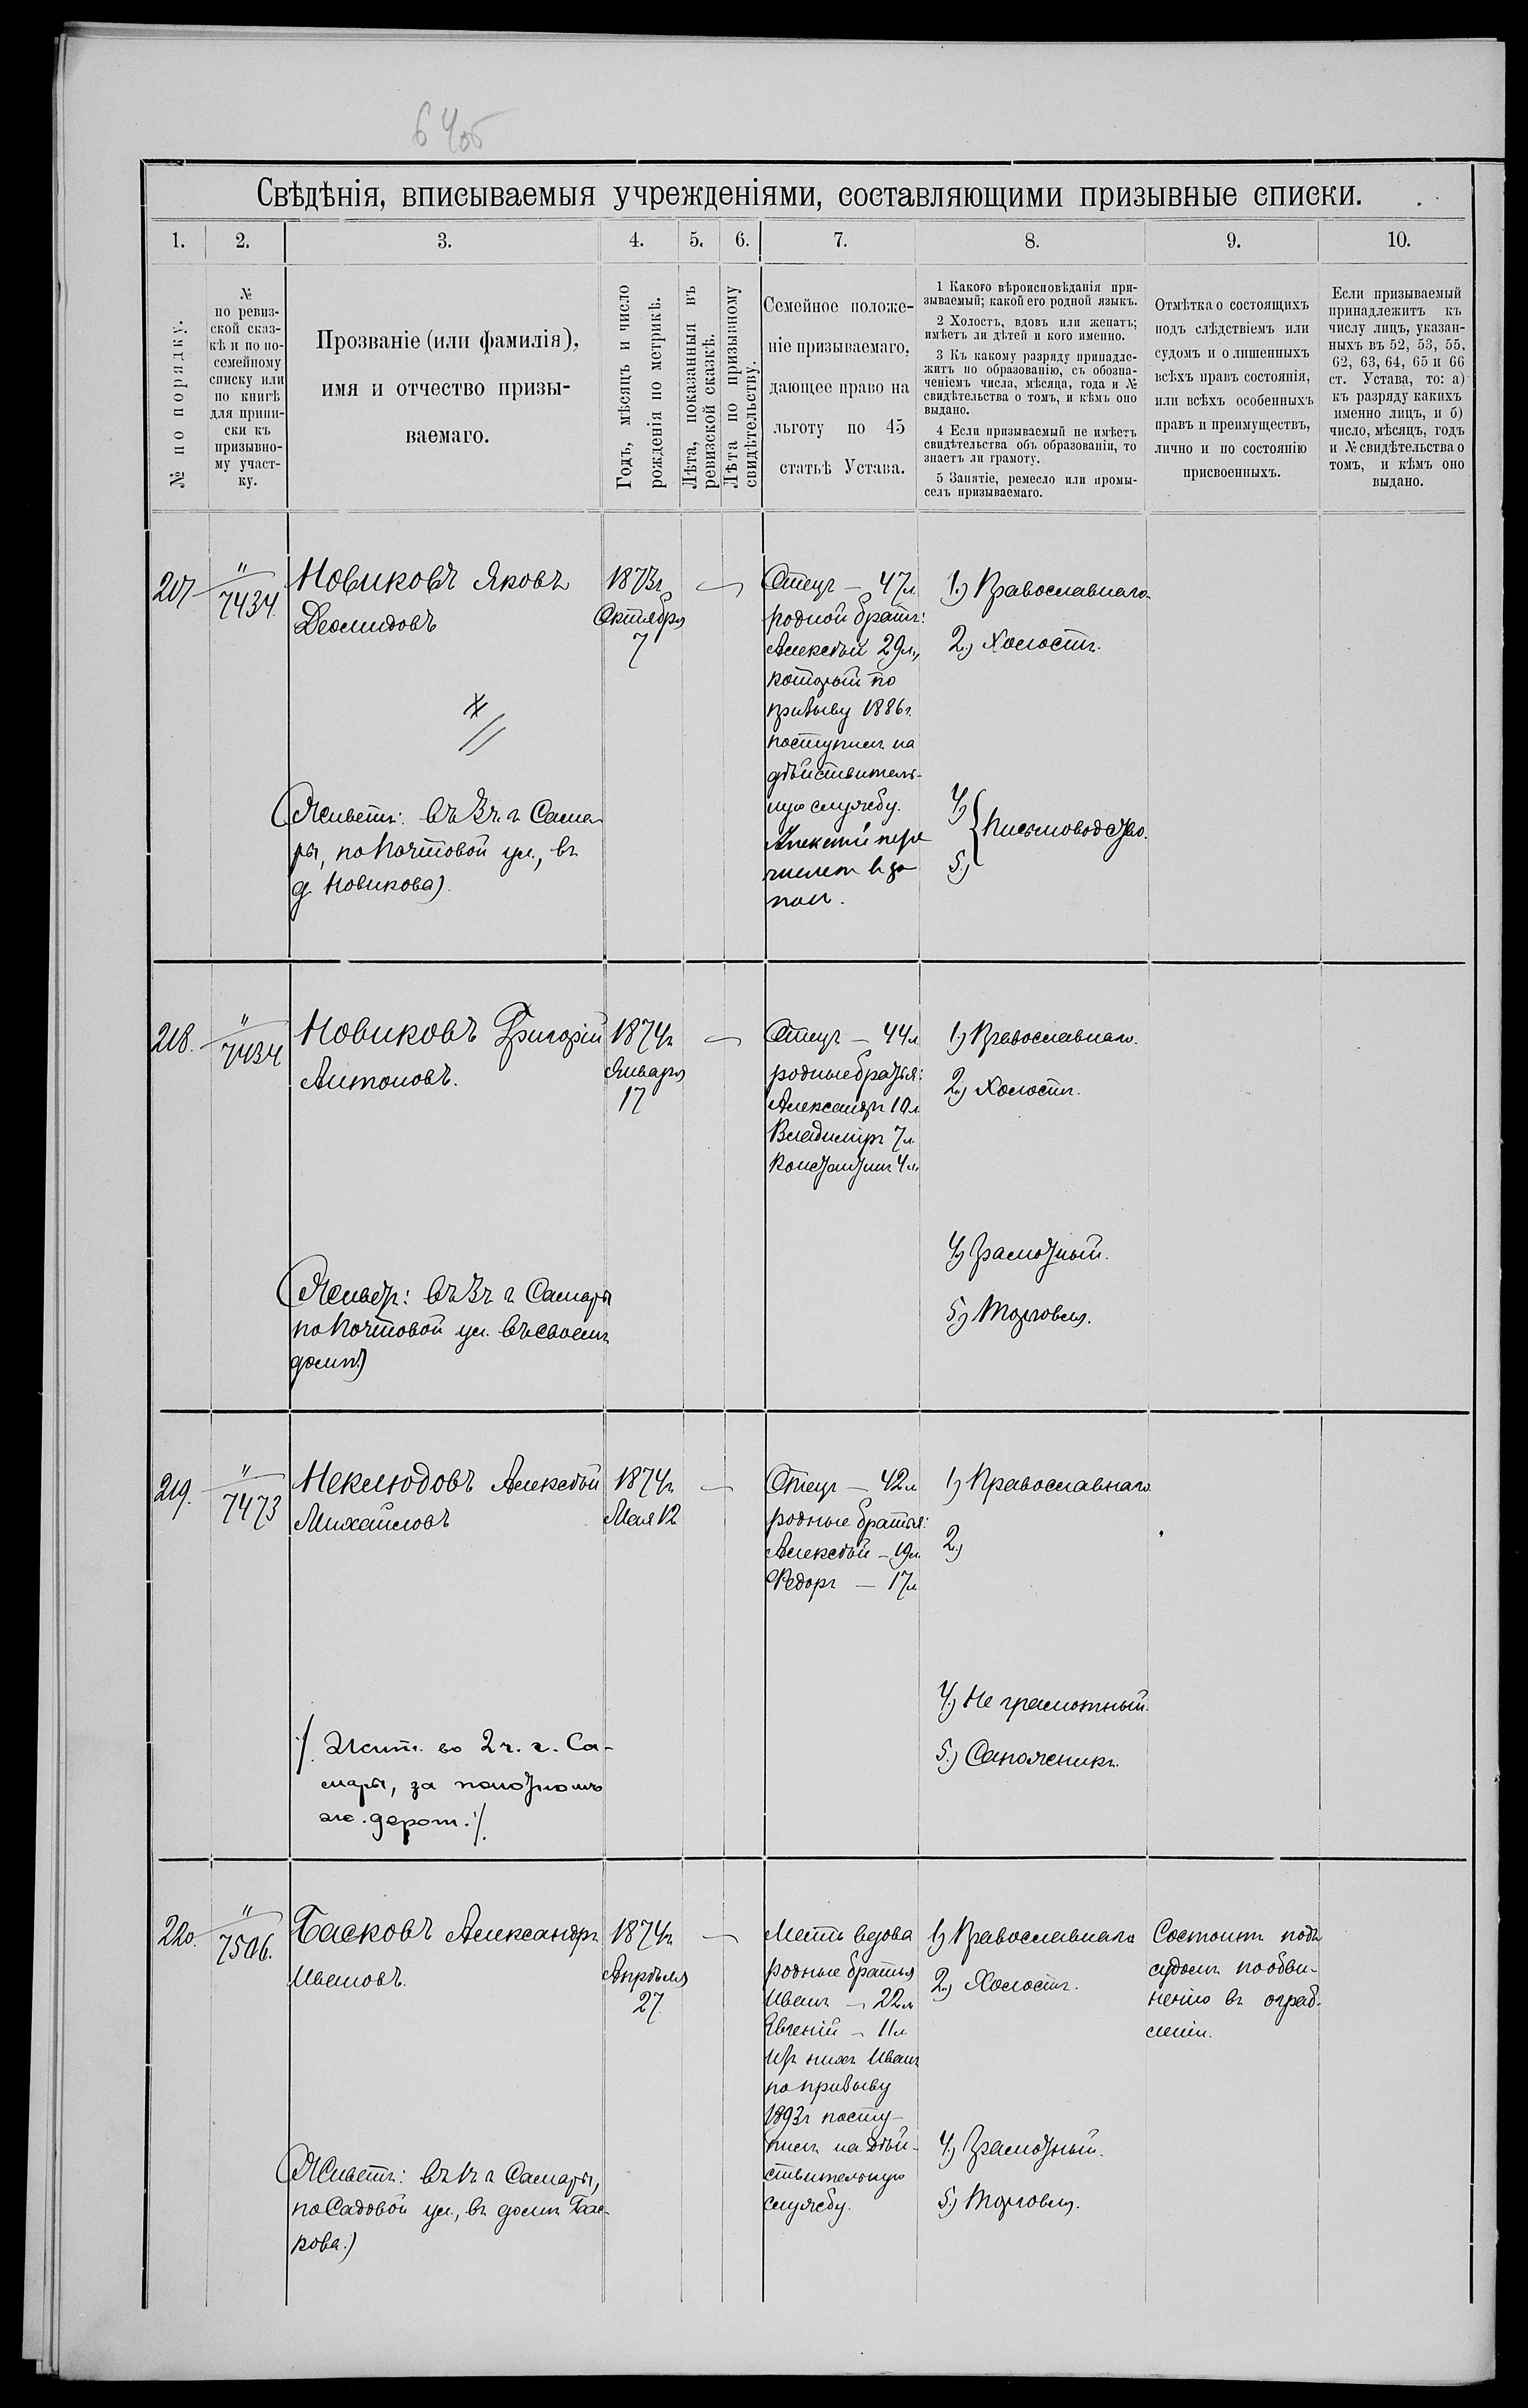 64об
Свѣдѣнія, вписываемыя учрежденіями, составляющими призывные списки.
1. 2. 3. 4. 5. 6. 7. 8. 9. 10.
№ по порядку.
№
по ревиз-
ской сказ-
кѣ и по по-
семейному
списку или
по книгѣ
для припи-
ски къ
призывно-
му участ-
ку.
Прозваніе (или фамилія),
имя и отчество призы-
ваемаго.
Годъ, мѣсяцъ и число
рожденія по метрикѣ.
Лѣта, показанныя въ
ревизской сказкѣ.
Лѣта по призывному
свидѣтельству.
Семейное положе-
ніе призываемаго,
дающее право на
льготу по 45
статьѣ Устава.
1 Какого вѣроисповѣданія при-
зываемый; какой его родной языкъ.
2 Холостъ, вдовъ или женатъ;
имѣетъ ли дѣтей и кого именно.
3 Къ какому разряду принадле-
житъ по образованію, съ обозна-
ченіемъ числа, мѣсяца, года и №
свидѣтельства о томъ, и кѣмъ оно
выдано.
4 Если призываемый не имѣетъ
свидѣтельства объ образованіи, то
знаетъ ли грамоту.
5 Занятіе, ремесло или промы-
селъ призываемаго.
Отмѣтка о состоящихъ
подъ слѣдствіемъ или
судомъ и о лишенныхъ
всѣхъ правъ состоянія,
или всѣхъ особенныхъ
правъ и преимуществъ,
лично и по состоянію
присвоенныхъ.
Если призываемый
принадлежитъ къ
числу лицъ, указан-
ныхъ въ 52, 53, 55,
62, 63, 64, 65 и 66
ст. Устава, то: а)
къ разряду какихъ
именно лицъ, и б)
число, мѣсяцъ, годъ
и № свидѣтельства о
томъ, и кѣмъ оно
выдано.
217
"
7434.
Новиковъ Яковъ
Деомидовъ
(Живетъ: въ 3ч. г. Сама-
ры, по Почтовой ул., въ
д. Новикова).
1873г.
Октября
7
—
Отецъ — 47л.
родной братъ:
Алексѣй 29л.,
который по
призыву 1886г.
поступилъ на
дѣйствитель-
ную службу.
Алексѣй пере
численъ въ за
пасъ.
1.) Православнаго.
2.) Холостъ.
4.)
5.)
Письмоводство.
218.
"
7434
Новиковъ Григорій
Антоновъ.
(Живетъ: въ 3ч. г. Самары
по Почтовой ул. въ своемъ
домѣ)
1874г.
Января
17
—
Отецъ — 44л.
родные братья:
Александръ 10л.
Владиміръ 7л.
Константинъ 4л.
1.) Православнаго.
2.) Холостъ.
4.) Грамотный.
5.) Торговля.
219.
"
7473
Неклюдовъ Алексѣй
Михайловъ
/. Жит. во 2 ч. г. Са-
мары, за полотномъ
же. дорог. /.
1874г.
Мая 12
—
Отецъ — 42л.
родные братья:
Алексѣй — 19л.
Федоръ — 17л.
1.) Православнаго
2.)
4.) Не грамотный.
5.) Сапожникъ.
220.
"
7506.
Басковъ Александръ
Ивановъ.
(Живетъ: въ 1ч. г. Самары,
по Садовой ул., въ домѣ Бас-
кова.)
1874г.
Апрѣля
27.
—
Мать вдова
родные братья
Иванъ — 22л.
Евгеній — 11л.
Изъ нихъ Иванъ
по призыву
1893г. посту-
пилъ на дѣй-
ствительную
службу.
1.) Православнаго
2.) Холостъ.
4.) Грамотный.
5.) Торговля.
Состоитъ подъ
судомъ по обви-
ненію въ ограб-
леніи.